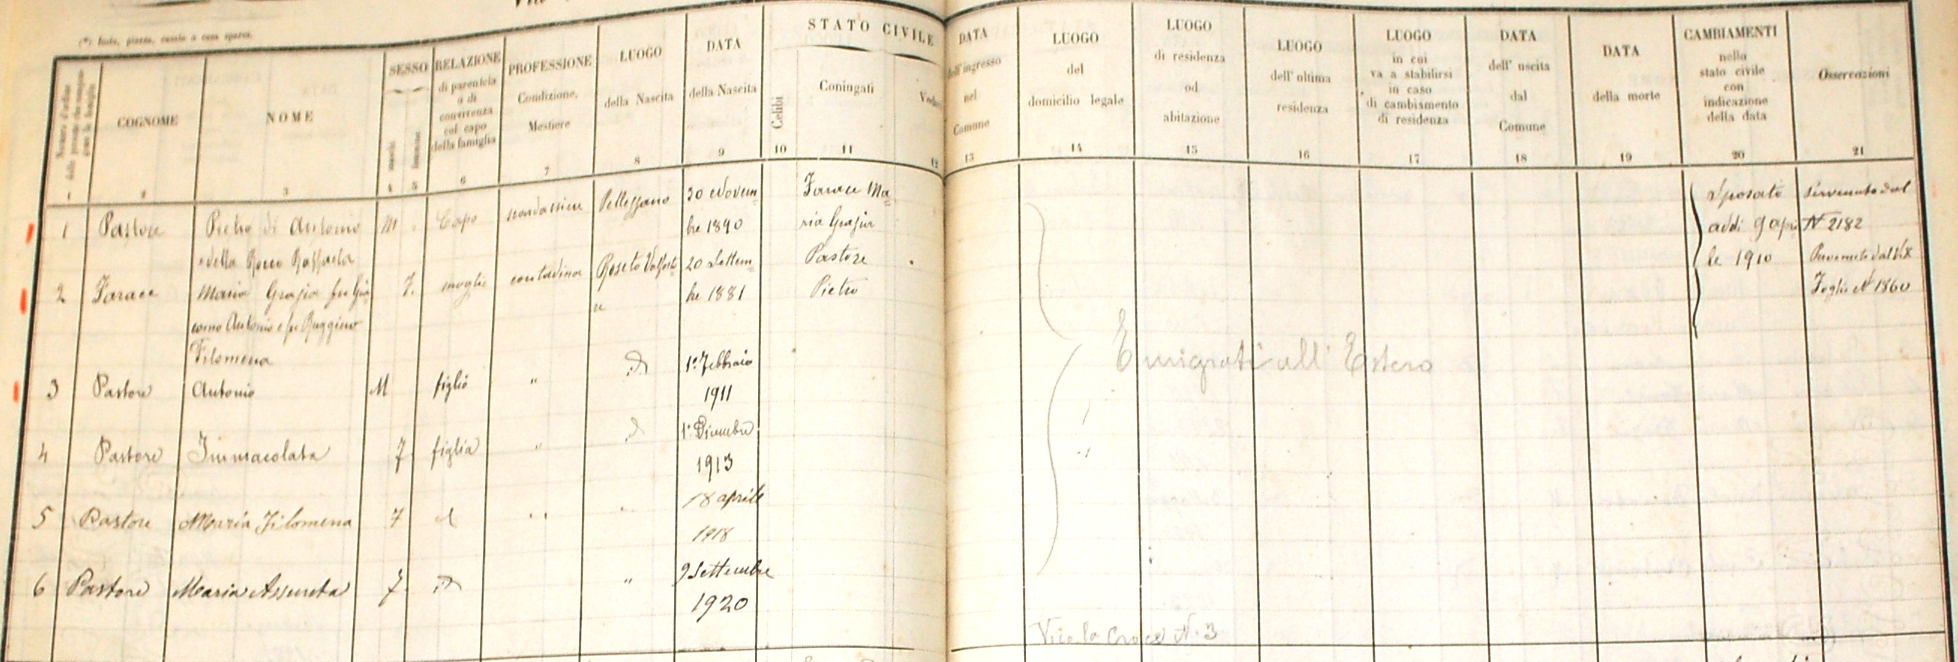 (*) Isola, piazza, casale o casa sparsa.
Numero d'ordine delle persone che compongono la famiglia
COGNOME
NOME
SESSO
maschi
femmine
RELAZIONE
di parentela
o di
convivenza
col capo
della famiglia
PROFESSIONE
Condizione,
Mestiere
LUOGO
della Nascita
DATA
della Nascita
STATO CIVILE
Celibi
Coniugati
Vedovi
DATA
dell'ingresso
nel
Comune
LUOGO
del
domicilio legale
LUOGO
di residenza
od
abitazione
LUOGO
dell'ultima
residenza
LUOGO
in cui
va a stabilirsi
in caso
di cambiamento
di residenza
DATA
dell'uscita
dal
Comune
DATA
della morte
CAMBIAMENTI
nello
stato civile
con
indicazione
della data
Osservazioni
1 2 3 4 5 6 7 8 9 10 11 12 13 14 15 16 17 18 19 20 21
1 Pastore Pietro di Antonio M Capo Pellezzano 30 Novem Farace Ma Sposato Pervenuto dal
e della Rocco Raffaela bre 1890 ria Grazia addi 9 apri N 2182
2 Farace Maria Grazia fu Gia F. moglie contadina Roseto Valforto 20 Settem Pastore le 1910
como Antonio e fu Ruggiero re bre 1881 Pietro Foglio N 1860
Filomena
3 Pastore Antonio M figlio " id 1° Febbraio
1911
Emigrati all'Estero
4 Pastore Immacolata F. figlia " id 1° Dicembre
1913
5 Pastore Maria Filomena F id " " 18 aprile
1918
6 Pastore Maria Assunta F. id " 9 Settembre
1920
Vico la Croce N. 3